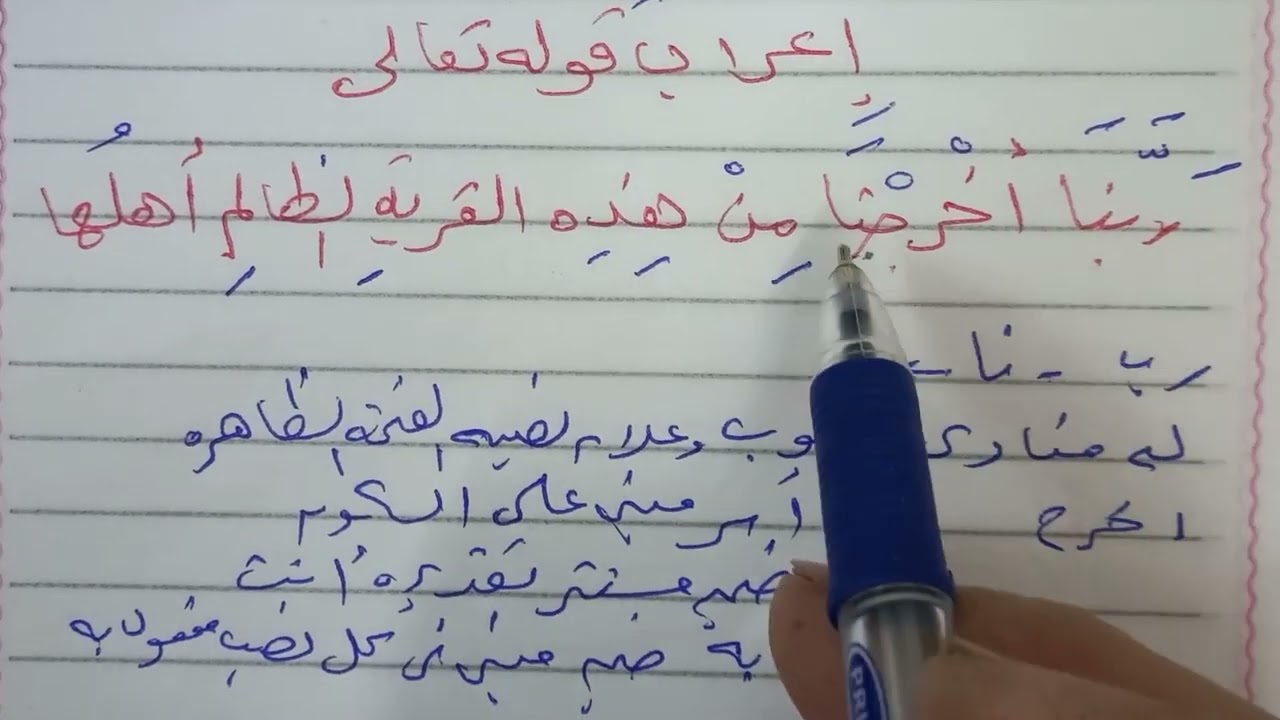 إعراب قوله تعالى
رَبَّنَا أَخْرِجْنَا مِنْ هٰذِهِ القَريَةِ الظالِمِ أَهلُها
رب - نا -
له منادى وب وعلام نصبه الفتحة الظاهره
اخرج أمر مبني على السكون
ضمير مستتر تقديره أنت
به ضمير مبني في محل نصب مفعول به
PRI